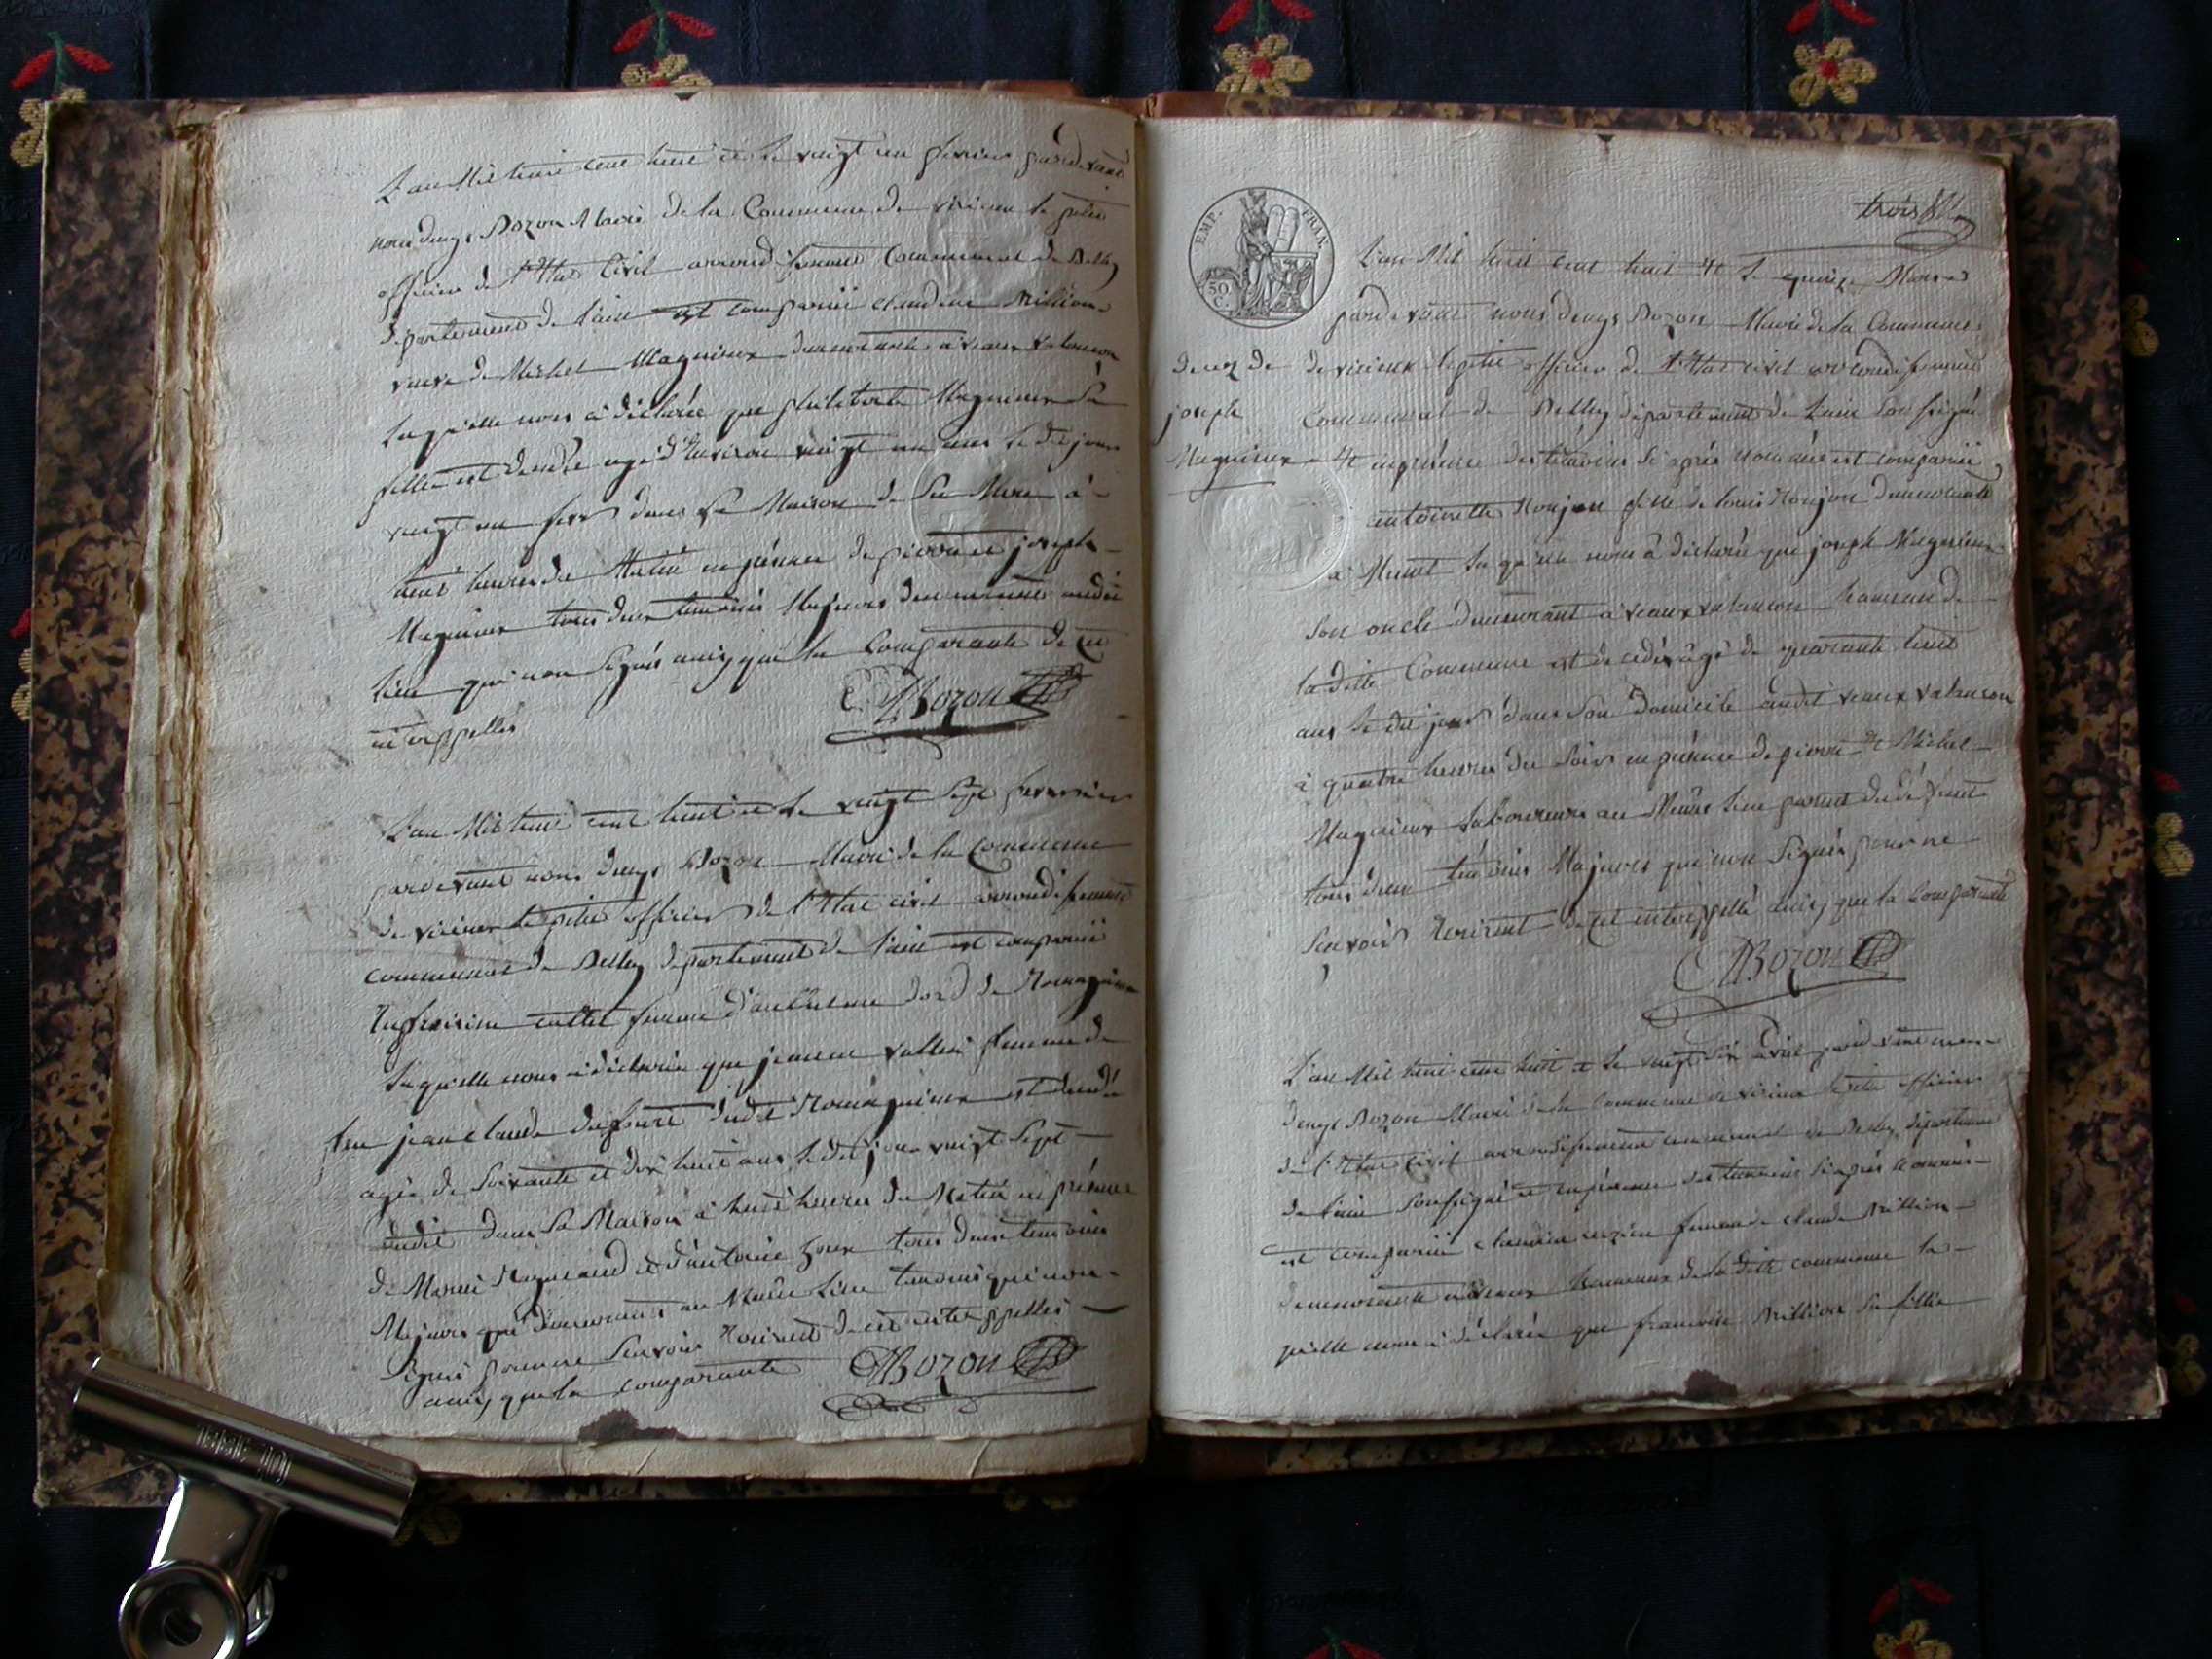 L'an Mil huit cent huit et le vingt un fevrier pardevant
nous denys Bozon Maire de la Commune de virieux le petit
officier de l'Etat Civil arrondissement Communal de Belley
departement de l'ain est comparüe claudine Million
veuve de Michel Magnieux demeurante a veaux valancon
laquelle nous a déclarée que philiberte Magnieux sa
fille est decedée agé d'Environ vingt un ans le dit jour
vingt un fevr dans la Maison de sa Mere à
huit heures du Matin en présence de pierre et joseph
Magnieux tous deux temoins Majeurs demeurants audit
lieu qui non Signés ainsy que la Comparante de ce
interppellés
Bozon
L'an Mil huit cent huit et le vingt sept fevrier
pardevant nous denys Bozon Maire de la Commune
de virieux le petit officier de l'Etat civil arrondissement
communal de Belley departement de l'ain est comparüe
femme d'anthelme de
laquelle nous a déclarée que jeanne vallin femme de
feu jean claude dudit est decedée
agée de Soixante et dix huit ans le dit jour vingt Sept
dudit dans Sa Maison à huit heures du Matin en présence
de et d'antoine tous deux temoins
Majeurs qui demeurants au Même lieu temoins qui non
Signés pour ne Scavoir Ecrirent de ce interppellés
ainsy que la comparante
Bozon
trois
EMP. FRAN.
50 C.
L'an Mil huit cent huit Et le quinze Mars
pardevant nous denys Bozon Maire de la Commune
decez de
joseph
Magnieux
de virieux le petit officier de l'Etat civil arrondissement
Communal de Belley departement de l'ain Soussigné
Et en présence des témoins Si après nommés est comparüe
antoinette Monjon fille de louis Monjon demeurante
a Munet laquelle nous à déclarée que joseph Magnieux
Son oncle demeurant a veaux valancon hameau de
la ditte Commune est decedé âgé de quarante huit
ans le dit jour dans Son Domicile audit veaux valancon
à quatre heures du Soir en présence de pierre Et Michel
Magnieux laboureurs au Même lieu parent du défunt
tous deux témoins Majeurs qui non Signés pour ne
Scavoir Ecrirent de ce interppellé ainsy que la Comparante
Bozon
L'an Mil huit cent huit et le vingt Six avril pardevant nous
denys Bozon Maire de la Commune de virieux le petit officier
de l'Etat Civil arrondissement communal de Belley departement
de l'ain Soussigné et en présence des temoins Si après nommés
est comparüe femme de claude Million
demeurante a veaux hameaux de la ditte commune la
quelle nous a déclarée que francoise Million Sa fille